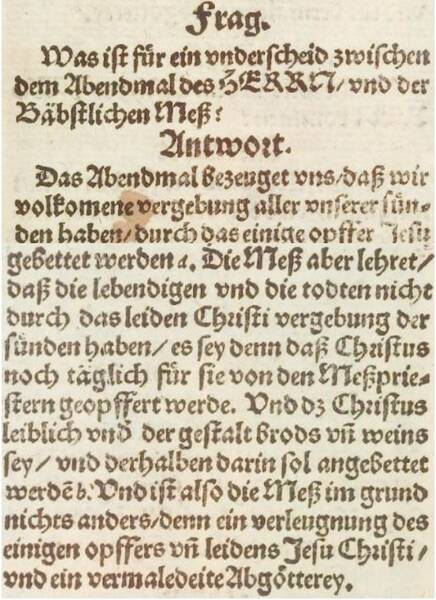 Frag.
Was ist für ein vnderscheid zwischen
dem Abendmal des HERRN/ vnd der
Bäbstlichen Meß?
Antwort.
Das Abendmal bezeuget vns/daß wir
volkomene vergebung aller vnserer sün-
den haben/durch das einige opffer Jesu
gebettet werden a. Die Meß aber lehret/
daß die lebendigen vnd die todten nicht
durch das leiden Christi vergebung der
sünden haben/ es sey denn daß Christus
noch täglich für sie von den Meßprie-
stern geopffert werde. Vnd dz Christus
leiblich vnd der gestalt brods vñ weins
sey/ vnd derhalben darin sol angebettet
werdē b. Vnd ist also die Meß im grund
nichts anders/denn ein verleugnung des
einigen opffers vñ leidens Jesu Christi/
vnd ein vermaledeite Abgötterey.